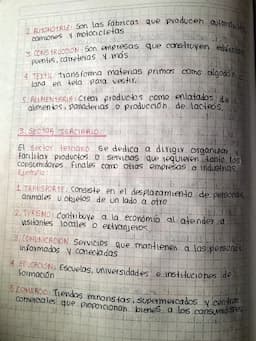 2. AUTOMOTRIZ: Son las fábricas que producen
camiones y motocicletas
3. CONSTRUCCIÓN: Son empresas que construyen
puentes, carreteras y más
4. TEXTIL: Transforma materias primas como algodón
lana en tela para vestir.
5. ALIMENTARIA: Crean productos como enlatados de
alimentos, panaderías o producción de lácteos.
3. SECTOR TERCIARIO:
El sector terciario se dedica a dirigir, organizar y
facilitar productos o servicios que requieren tanto los
consumidores finales como otras empresas o industrias.
Ejemplo
1. TRANSPORTE: Consiste en el desplazamiento de personas
animales u objetos de un lado a otro
2. TURISMO: Contribuye a la economía al atender a
visitantes locales o extranjeros
3. COMUNICACIÓN: Servicios que mantienen a las personas
informados y conectadas
4. EDUCACIÓN: Escuelas, universidades e instituciones de
formación
5. COMERCIO: Tiendas minoristas, supermercados y centros
comerciales que proporcionan bienes a los consumidores